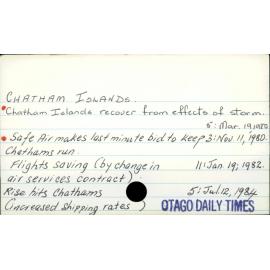 CHATHAM ISLANDS.
Chatham Islands recover from effects of storm.
5: Mar. 19, 1980
Safe Air makes last minute bid to keep 3: Nov. 11, 1980.
Chathams run.
Flights saving (by change in 11: Jan 19, 1982.
air services contract)
Rise hits Chathams 5: Jul. 12, 1984
(increased shipping rates) OTAGO DAILY TIMES